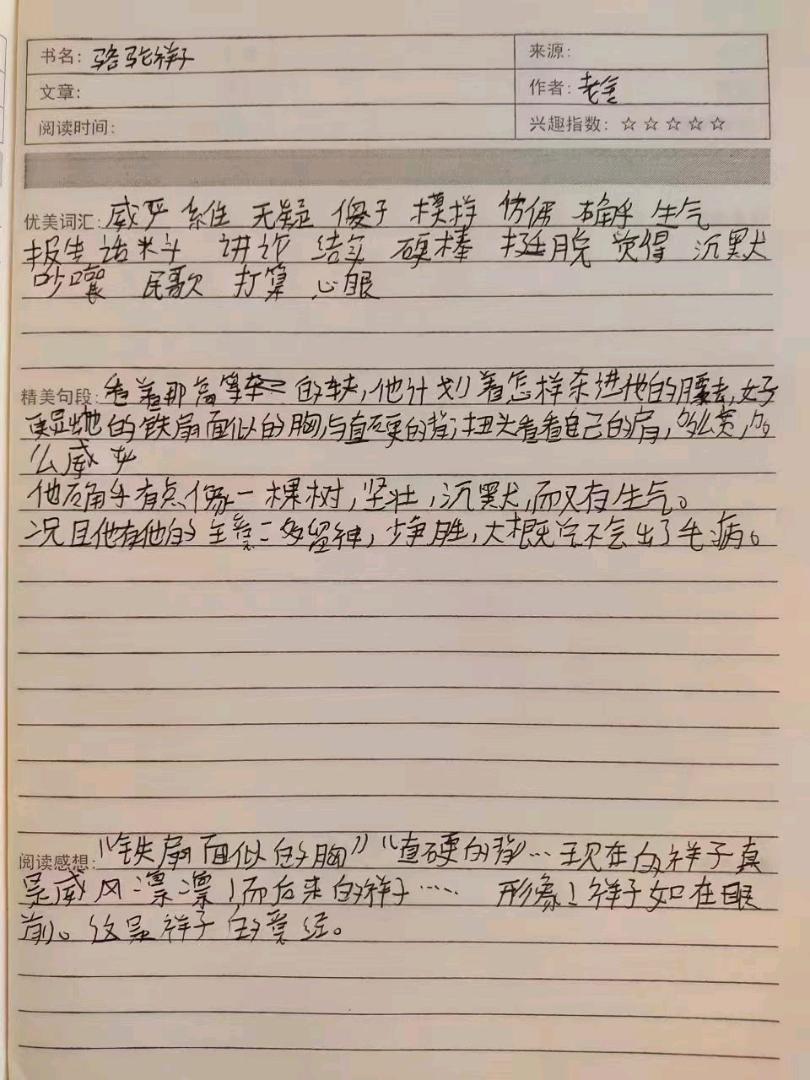 书名: 骆驼祥子 来源:
文章: 作者: 老舍
阅读时间: 兴趣指数: ☆☆☆☆☆
优美词汇: 威严 维 无疑 傻子 模样 仿佛 确乎 生气
报告 话料 讲 结实 硬棒 挺脱 觉得 沉默
吵嚷 民歌 打算 心眼
精美句段: 看着那高等车夫,他计划着怎样杀进他的腰去,好
更显出他的铁扇面似的胸,与直硬的背;扭头看看自己的肩,多么宽,多
么威严
他确乎有点像一棵树,坚壮,沉默,而又有生气。
况且他有他的主意:多留神,少争胜,大概总不会出了毛病。
阅读感想: “铁扇面似的胸”“直硬的背”…现在的祥子真
是威风凛凛!而后来的祥子…… 形象!祥子如在眼
前。这是祥子的